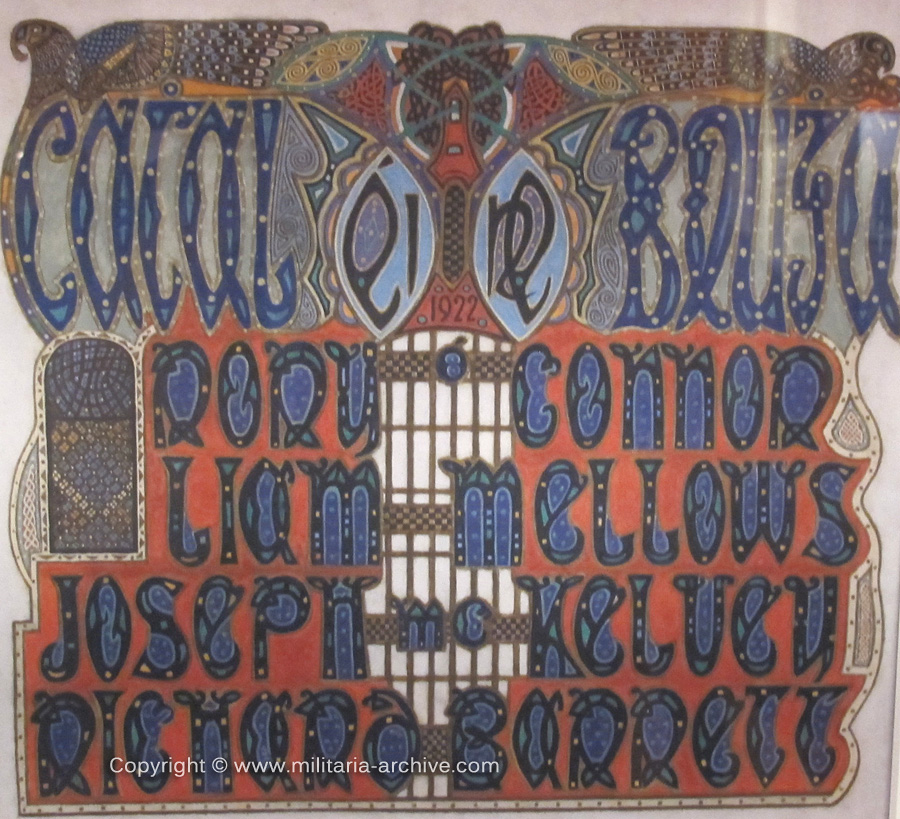 CATAL eire BRUGA
1922
RORY O CONNOR
LIAM MELLOWS
JOSEPH Mc KELVEY
RICHARD BARRETT
Copyright © www.militaria-archive.com